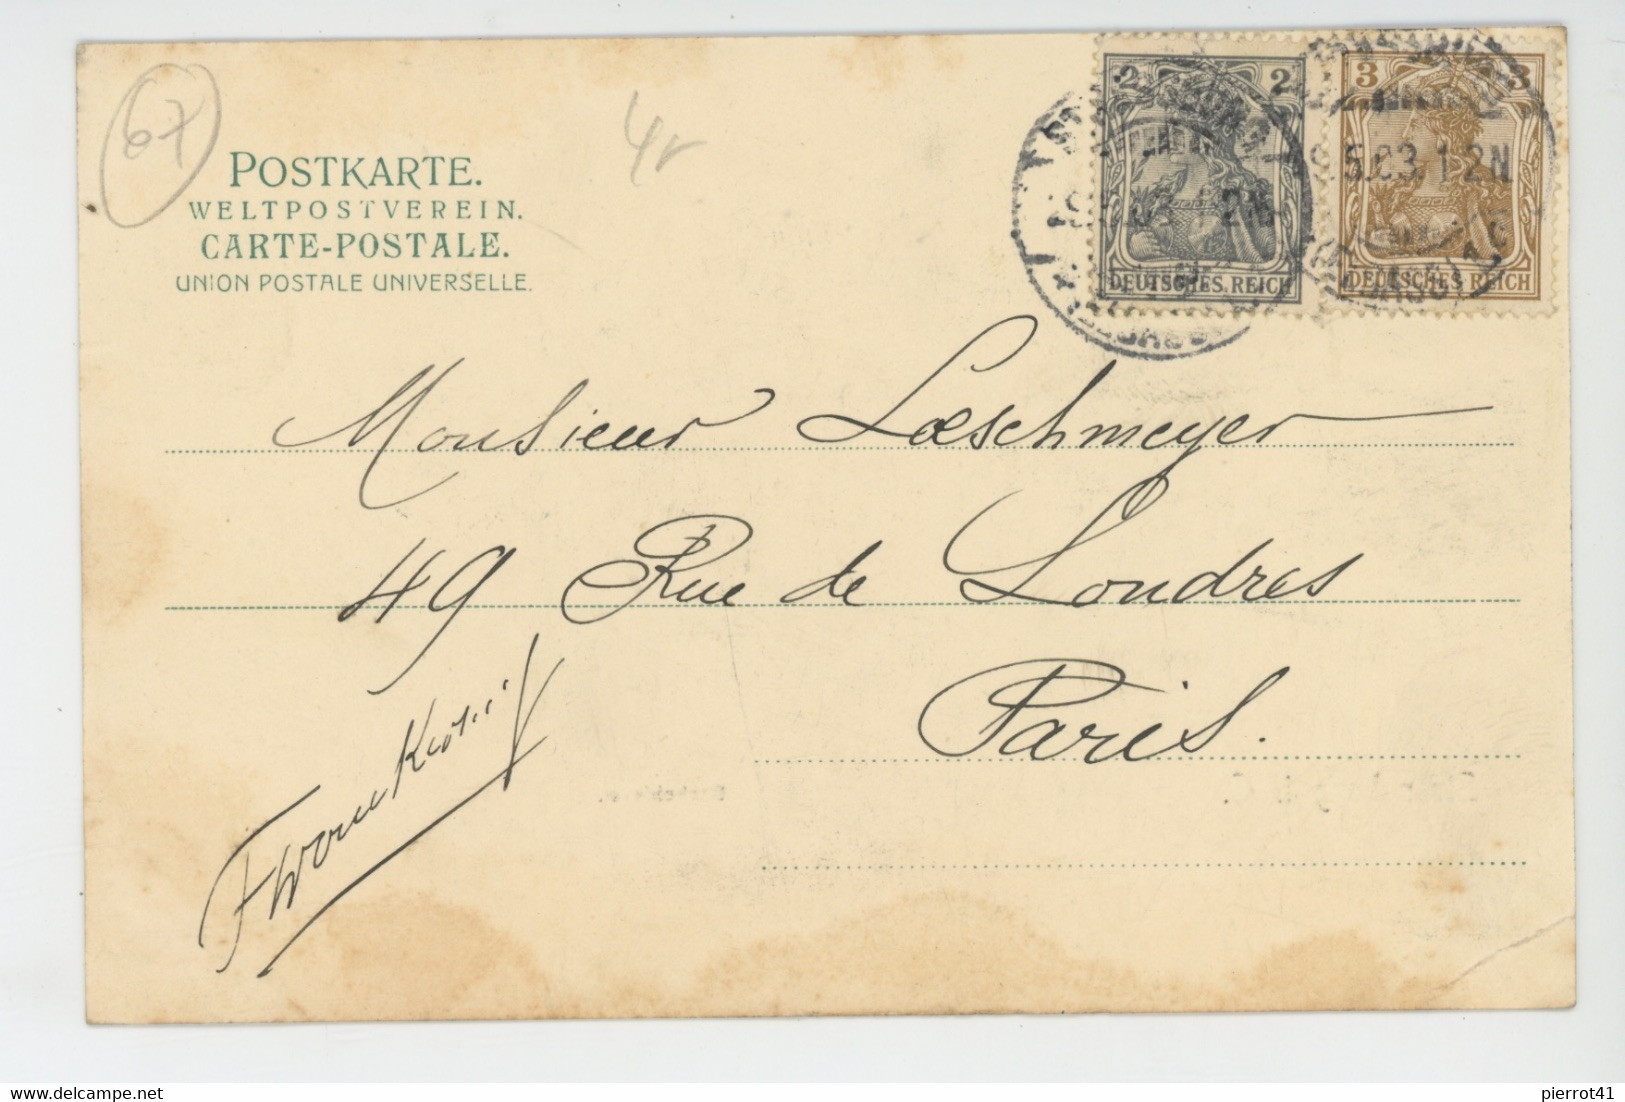 67
POSTKARTE.
WELTPOSTVEREIN.
CARTE-POSTALE.
UNION POSTALE UNIVERSELLE.
2 2
DEUTSCHES REICH
3 3
DEUTSCHES REICH
5.03.1-2N
Monsieur Loeschmeyer
49 Rue de Londres
Paris.
pierrot41